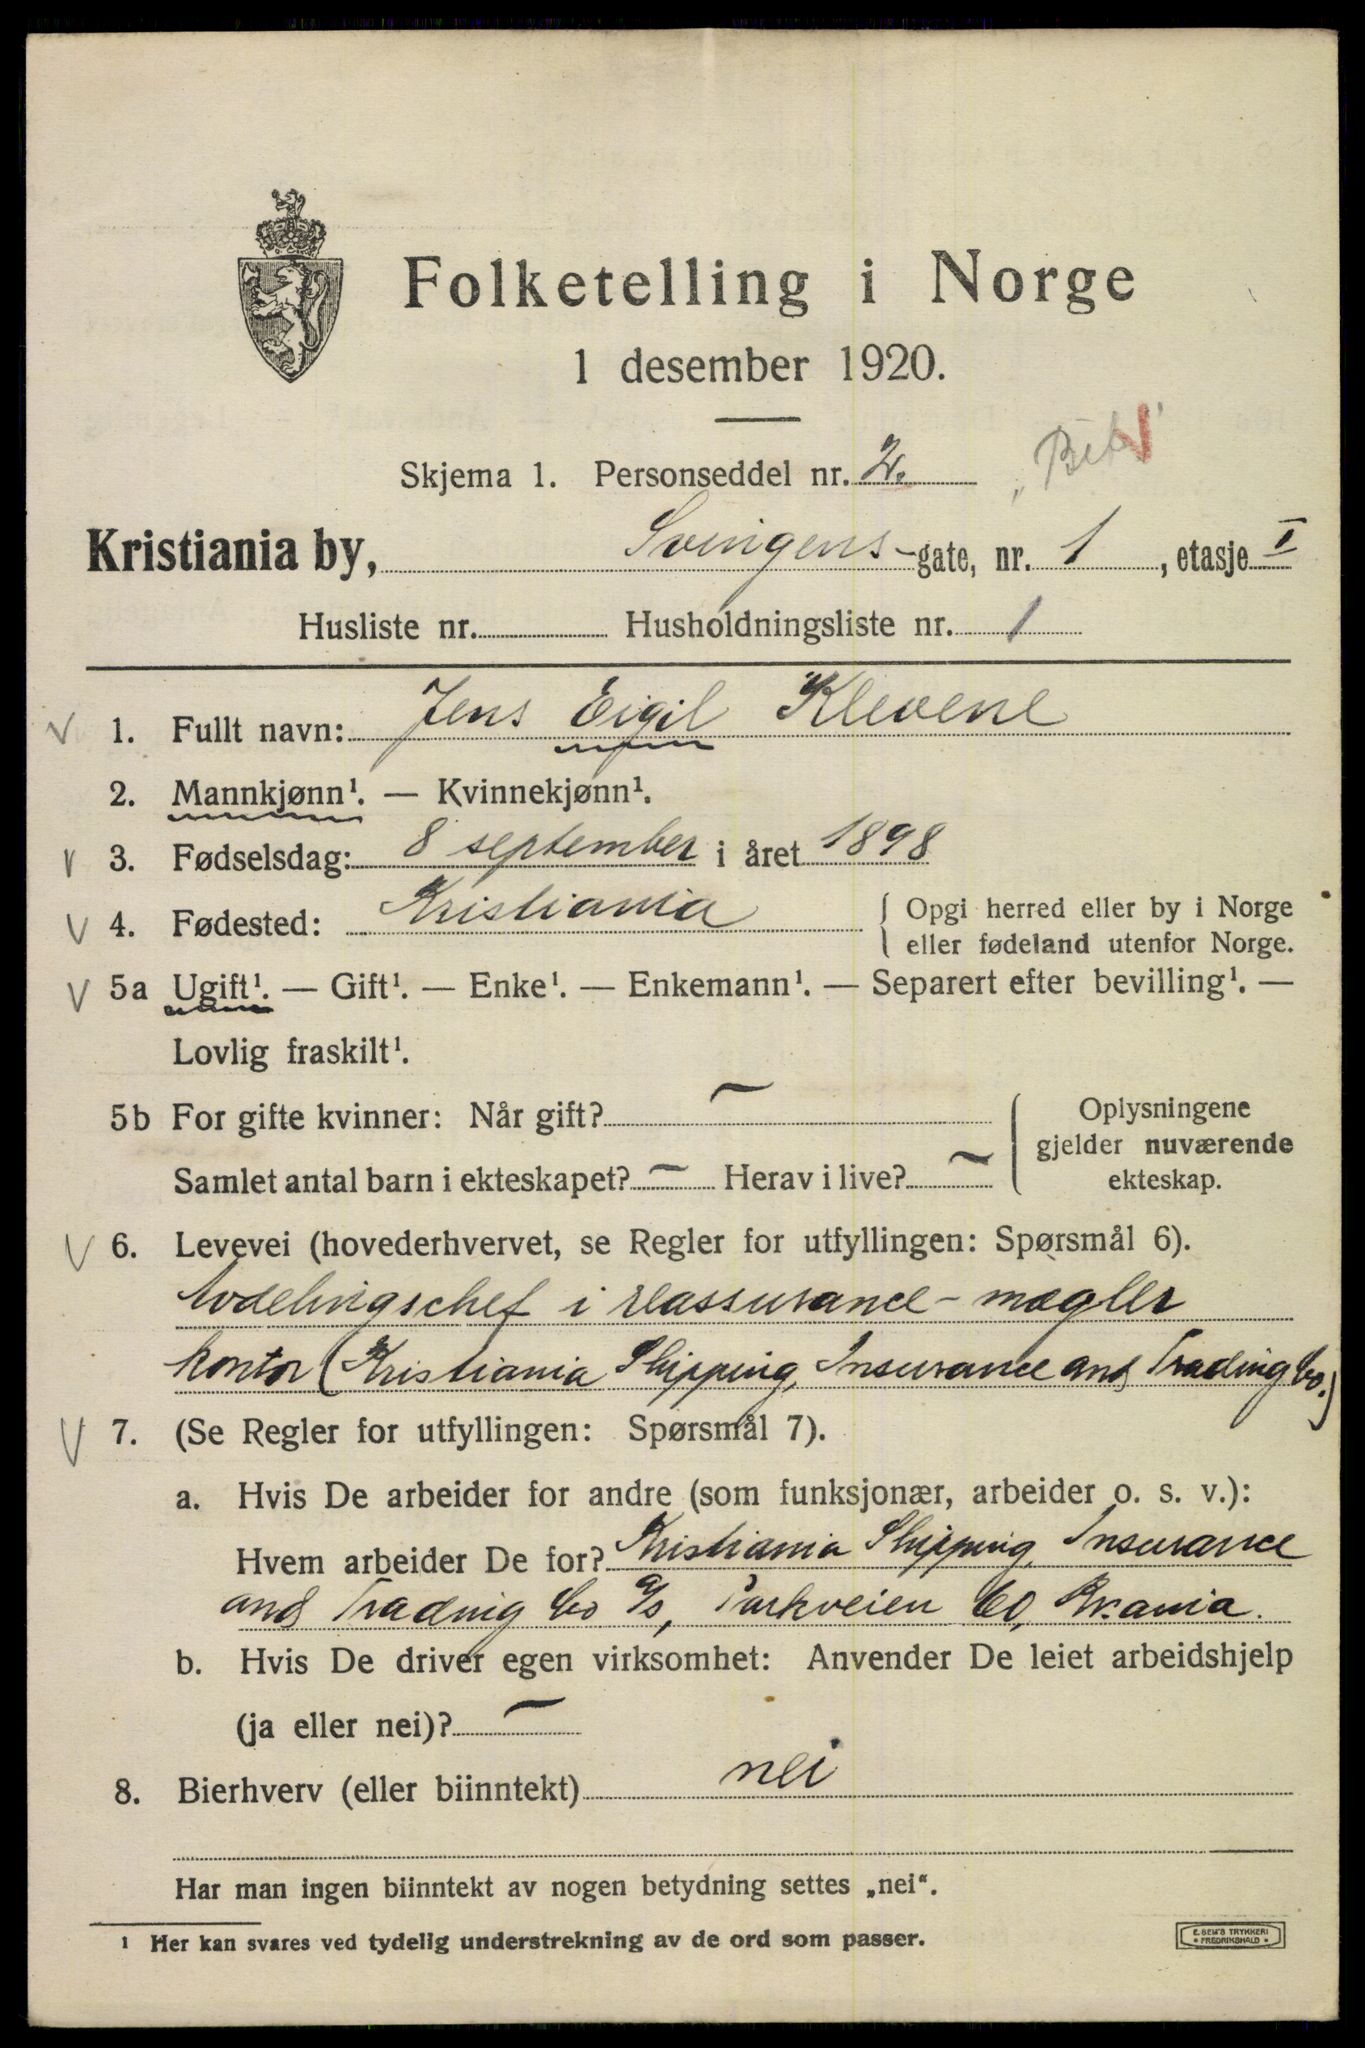 Folketelling i Norge
1 desember 1920.
Skjema 1. Personseddel nr. 2.
Kristiania by, Svingens-gate, nr. 1, etasje I
Husliste nr. Husholdningsliste nr. 1
1. Fullt navn: Jens Eigil Klevene
2. Mannkjønn¹. — Kvinnekjønn¹.
3. Fødselsdag: 8 september i året 1898
4. Fødested: Kristiania { Opgi herred eller by i Norge
eller fødeland utenfor Norge.
5a Ugift¹. — Gift¹. — Enke¹. — Enkemann¹. — Separert efter bevilling¹. —
Lovlig fraskilt¹.
5b For gifte kvinner: Når gift? — { Oplysningene
gjelder nuværende
Samlet antal barn i ekteskapet? — Herav i live? — ekteskap.
6. Levevei (hovederhvervet, se Regler for utfyllingen: Spørsmål 6).
Avdelingschef i reassurance-mægler
kontor (Kristiania Shipping, Insurance and Trading Co.)
7. (Se Regler for utfyllingen: Spørsmål 7).
a. Hvis De arbeider for andre (som funksjonær, arbeider o. s. v.):
Hvem arbeider De for? Kristiania Shipping, Insurance
and Trading Co a/s, Parkveien 60, Kr.ania.
b. Hvis De driver egen virksomhet: Anvender De leiet arbeidshjelp
(ja eller nei)? —
8. Bierhverv (eller biinntekt) nei
Har man ingen biinntekt av nogen betydning settes „nei“.
¹ Her kan svares ved tydelig understrekning av de ord som passer.
E. SEM'S TRYKKERI
FREDRIKSHALD